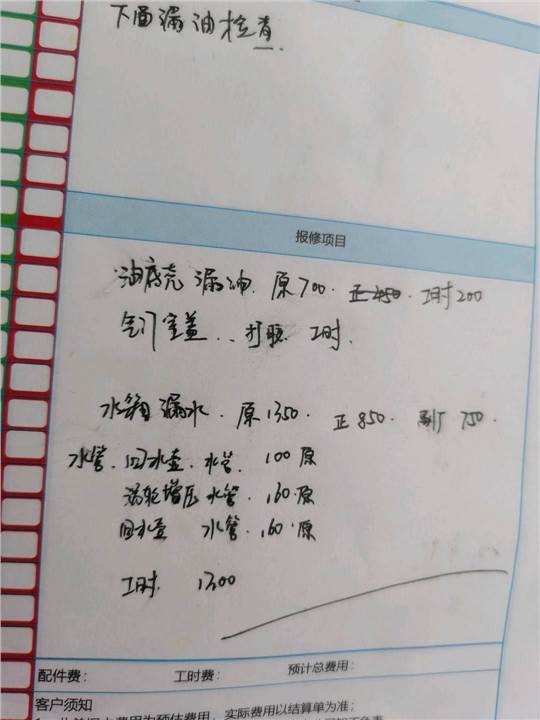 下面漏油检查.
报修项目
油底壳 漏油. 原700. 正450. 工时200
气门室盖 .. 打胶 工时.
水箱漏水. 原1350. 正850. 副厂 750.
水管. 回水壶. 水管. 100原
涡轮增压 水管. 160.原
回水壶 水管. 160.原
工时. 1300
配件费: 工时费: 预计总费用:
客户须知
费用为预估费用,实际费用以结算单为准;